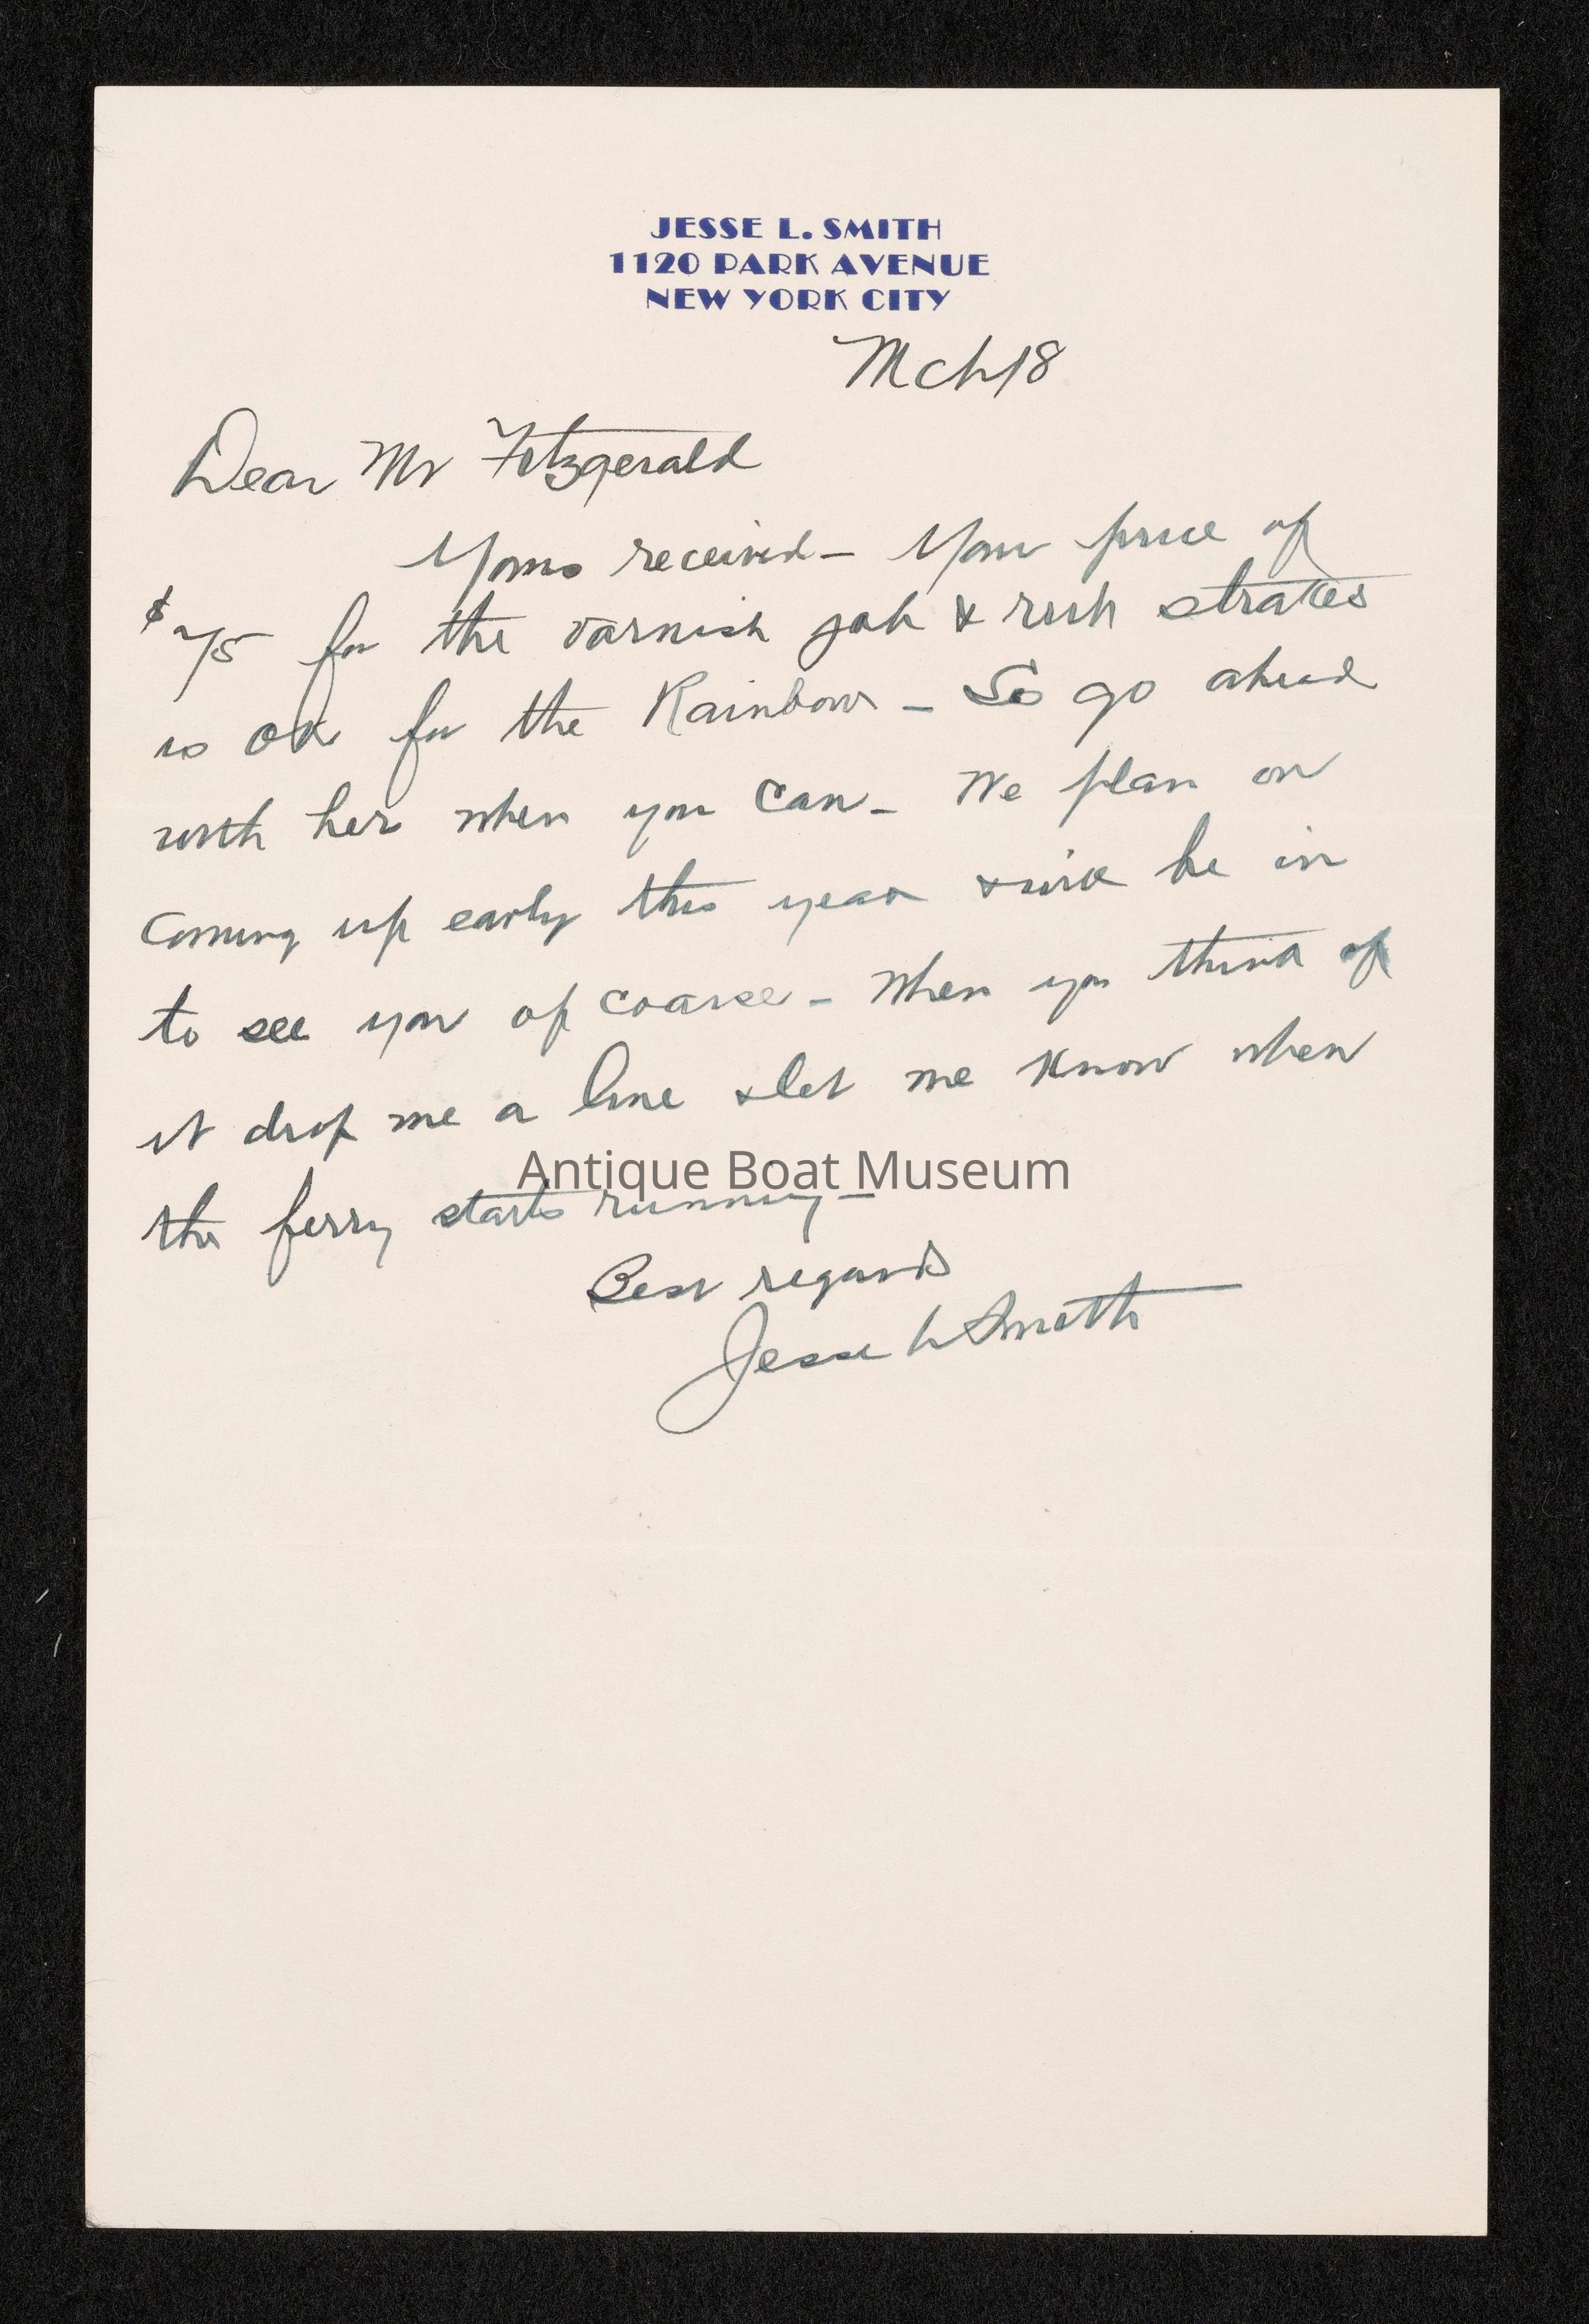 JESSE L. SMITH
1120 PARK AVENUE
NEW YORK CITY
Mch 18
Dear Mr Fitzgerald
Yours received – Your price of
$75 for the varnish job & rub strakes
is OK for the Rainbow – So go ahead
with her when you can – We plan on
coming up early this year & will be in
to see you of coarse – When you think of
it drop me a line & let me know when
Antique Boat Museum
the ferry starts running –
Best regards
Jesse L Smith